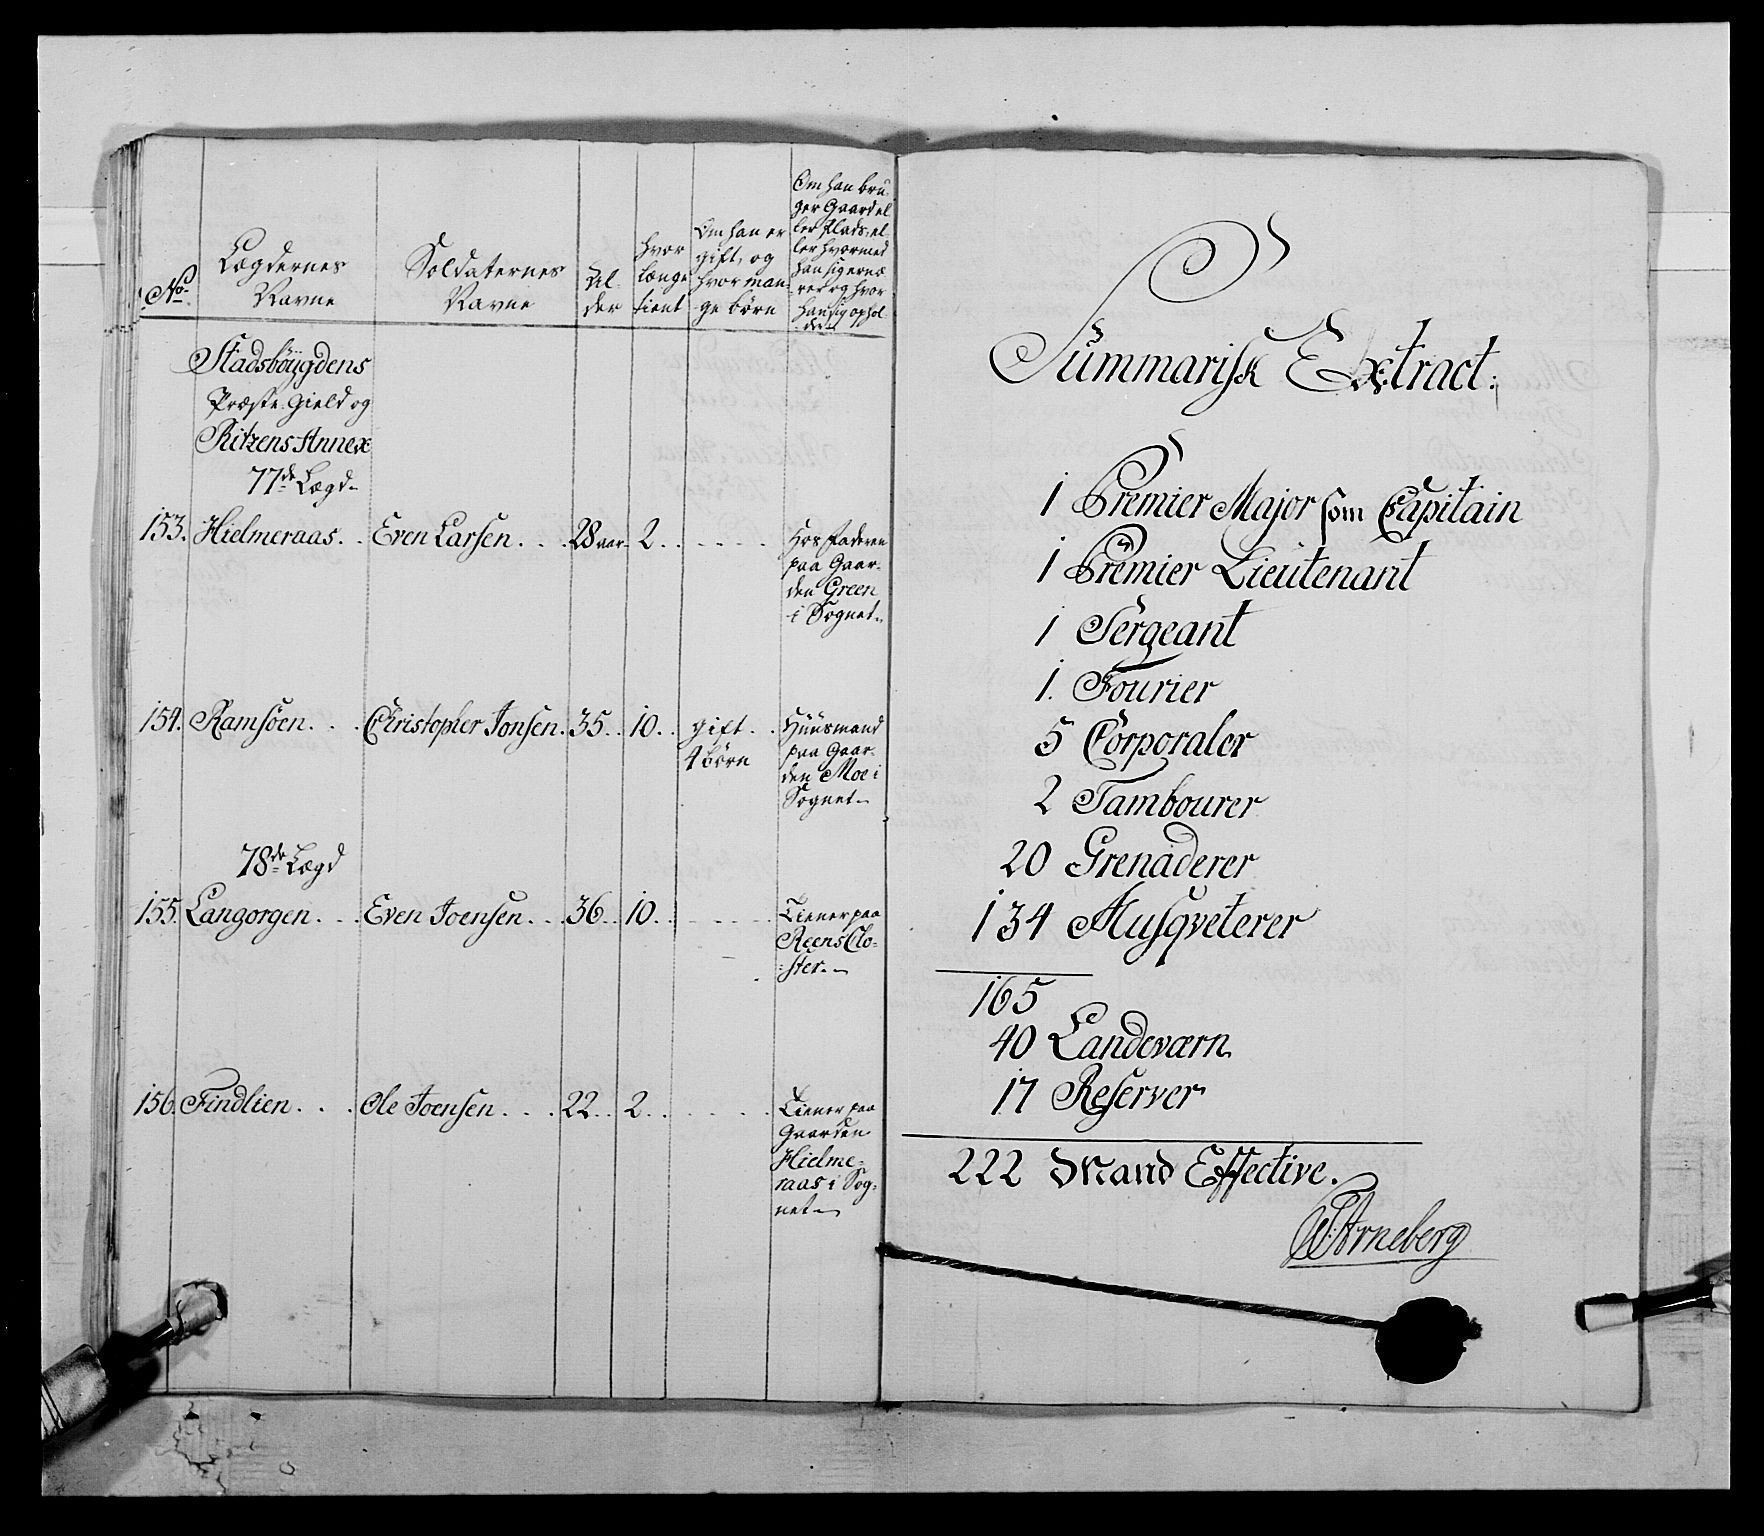 No.
Lægdernes
Navne
Soldaternes
Navne
Al-
der
hvor
længe
tient
Om han er
gift, og
hvor man-
ge börn
Om han bru-
ger Gaard el
ler Plads, el-
ler hvormed
han sig ernæ
rer og hvor
han sig ophol-
der
Stadsböygdens
Præste-Gield og
Ritzens Annex
77de Lægd
153. Hielmeraas. . Even Larsen. . . 28 aar. 2. . - - - -
Hos Faderen
paa Gaar-
den Green
i Sognet.
154. Ramsöen. . . Christopher Jonsen. 35. . 10. . gift. .
4 börn
Huusmand
paa Gaar-
den Moe i
Sognet.
78de Lægd
155. Langorgen. . . Even Joensen. . . 36. . 10. . - - - -
Tiener paa
Reens Clo-
ster.
156. Findlien. . . . Ole Joensen. . . . 22. . 2. . . . . .
Tiener paa
Gaarden
Hielme-
raas i Sog-
net.
Summarisk Extract.
1 Premier Major som Capitain
1 Premier Lieutenant
1 Sergeant
1. Fourier
5 Corporaler
2 Tambourer
20 Grenaderer
134 Musqveterer
165
40 Landeværn
17 Reserver
222 Mand Effective.
Arneberg